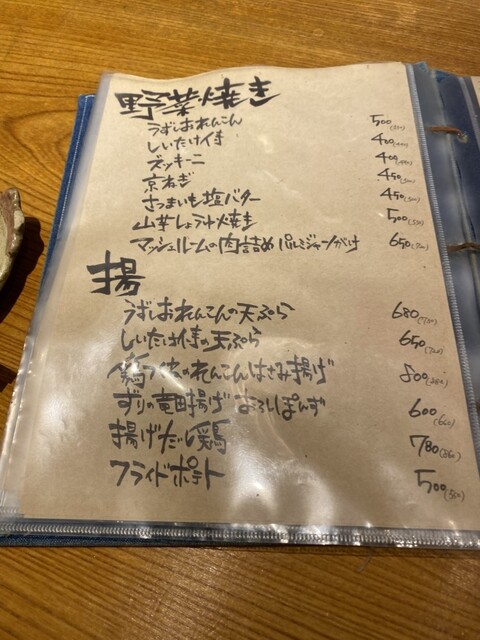 野菜焼き
うずしおれんこん 500(550)
しいたけ侍 400(440)
ズッキーニ 400(440)
京ねぎ 450
さつまいも塩バター 450
山芋しょうゆ焼き 500(550)
マッシュルームの肉詰め パルミジャーノがけ 650
揚
うずしおれんこんの天ぷら 680
しいたけ侍の天ぷら 650
鶏ミンチのれんこんはさみ揚げ 800(880)
ずりの竜田揚げ おろしぽんず 600(660)
揚げだし鶏 780
フライドポテト 500(550)